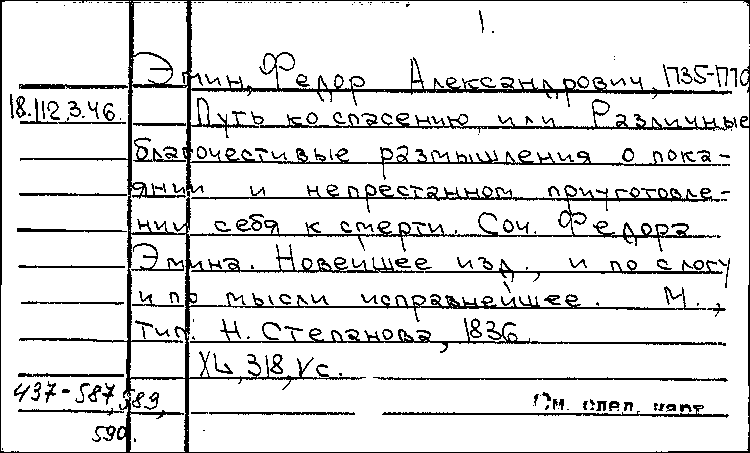 1.
Эмин, Федор Александрович, 1735-1770
18.112.3.46. Путь ко спасению, или Различные
благочестивые размышления о пока-
янии и непрестанном приуготовле-
нии себя к смерти. Соч. Федора
Эмина. Новейшее изд., и по слогу
и по мысли исправнейшее. М.,
тип. Н. Степанова, 1836.
XL, 318, V с.
437-587, 589,
См. след. карт.
590.